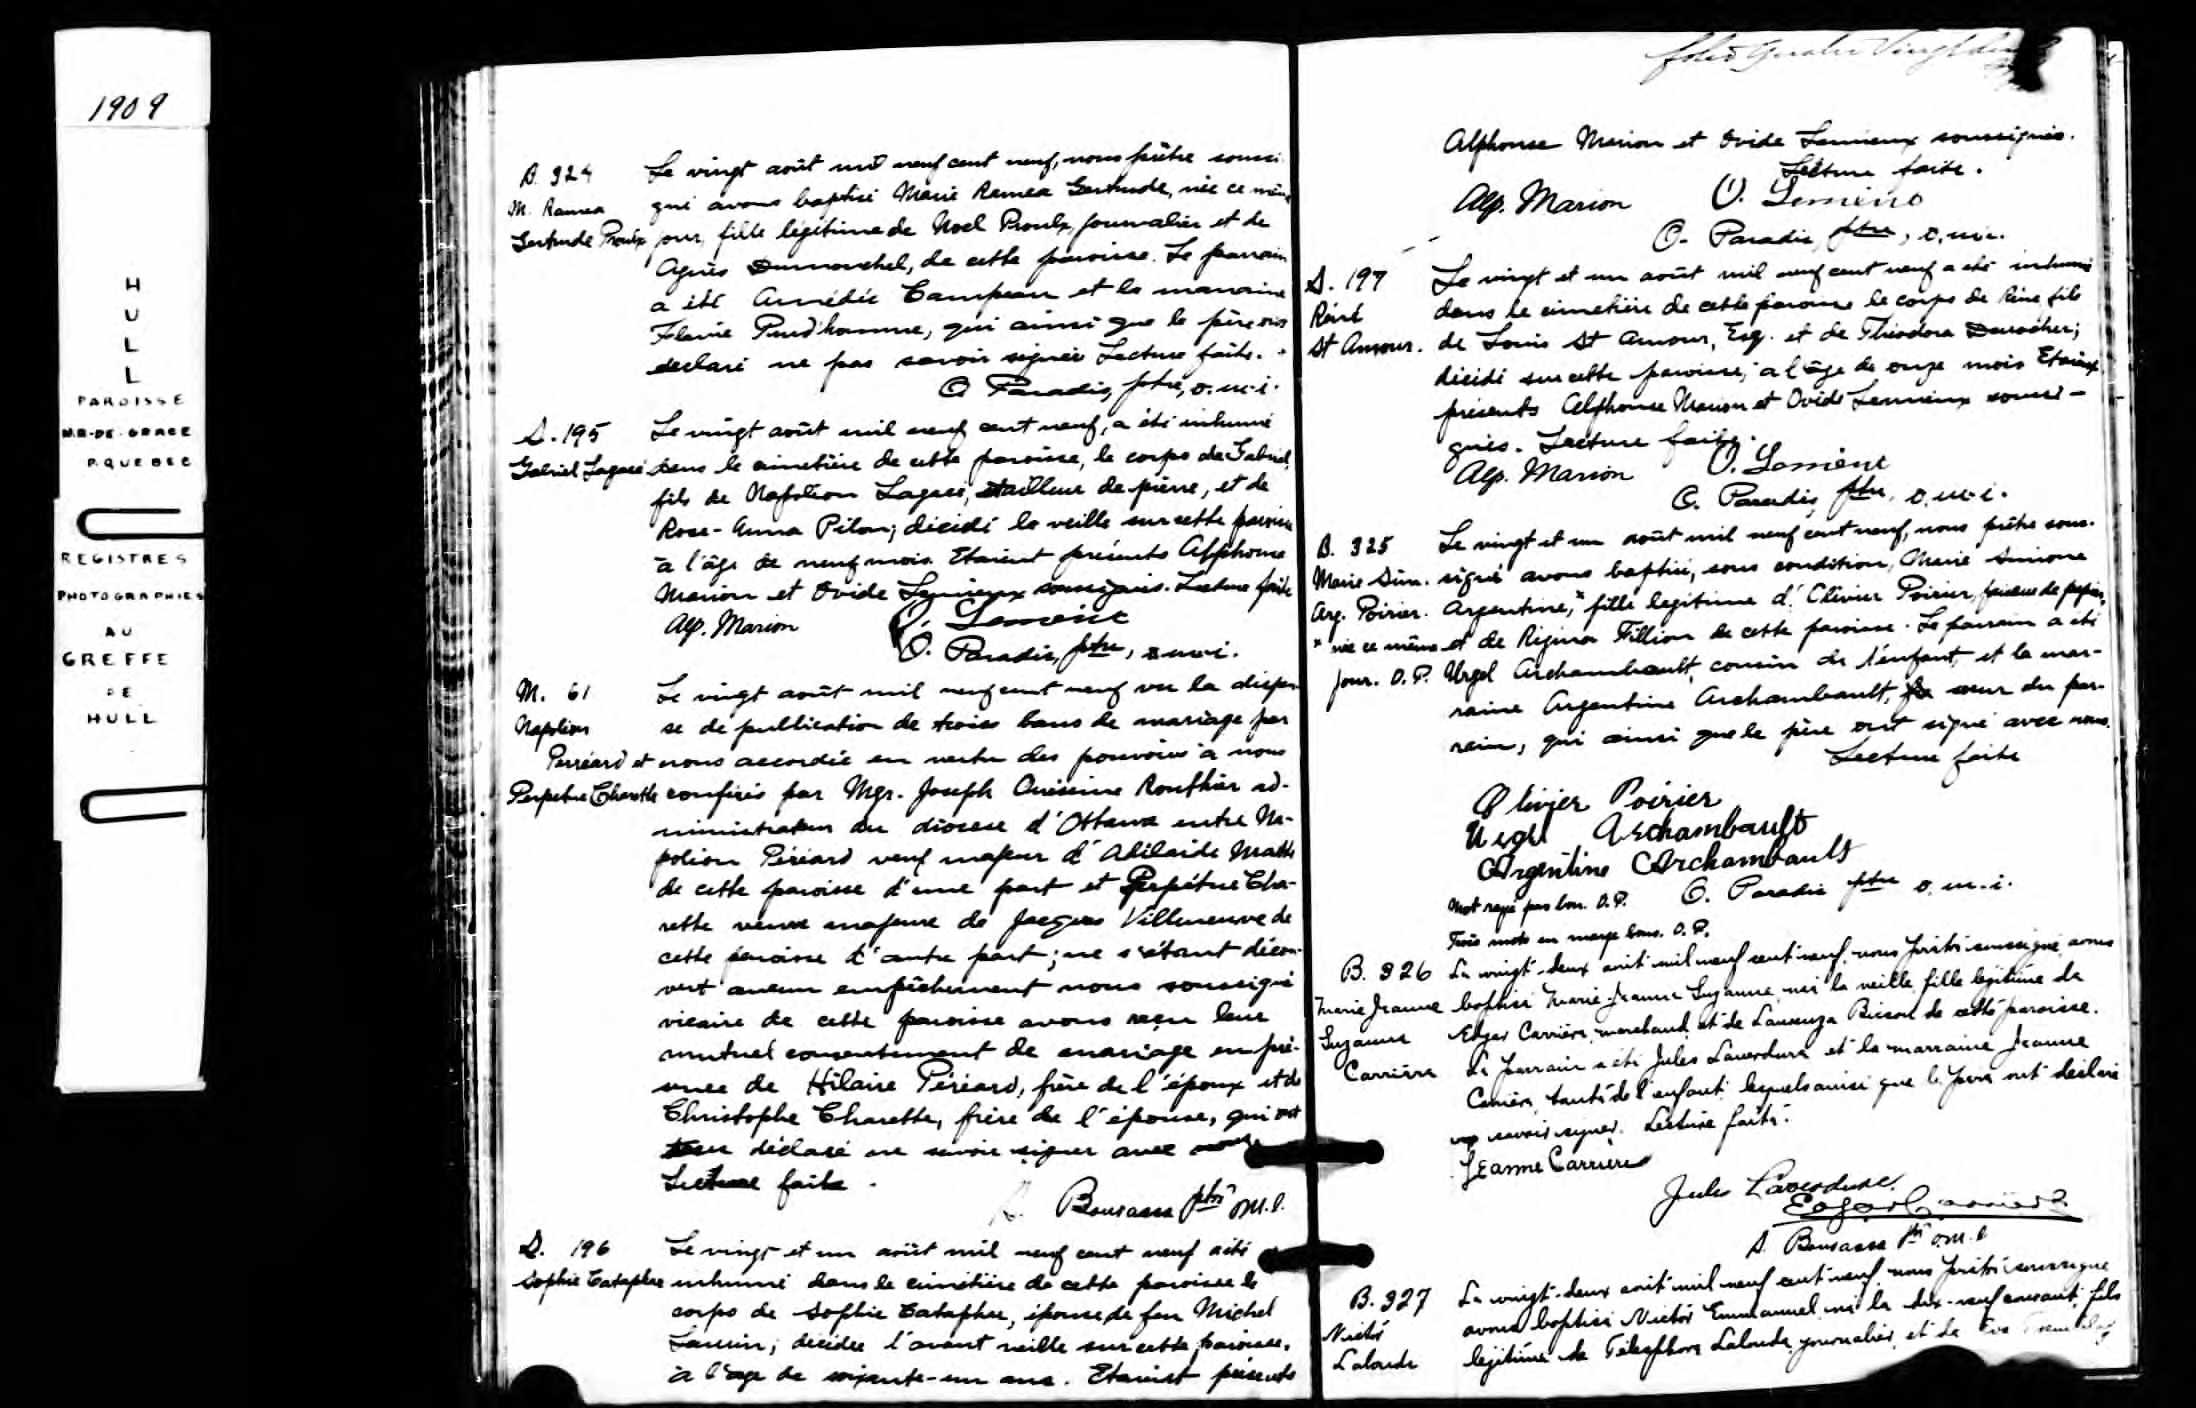 1909
H
U
L
L
PAROISSE
N.D-DE-GRACE
P.QUEBEC
REGISTRES
PHOTOGRAPHIES
AU
GREFFE
DE
HULL
B. 324
M. Ramea
Gertrude Proulx
Le vingt août mil neuf cent neuf, nous prêtre soussi-
gné avons baptisé Marie Ramea Gertrude, née ce même
jour, fille légitime de Noel Proulx, journalier et de
Agnès Dumouchel, de cette paroisse. Le parrain
a été Amédée Campeau et la marraine
Flavie Prud'homme, qui ainsi que le père ont
declaré ne pas savoir signer Lecture faite.
O Paradis, ptre, o.m.i.
S. 195
Gabriel Lagacé
Le vingt août mil neuf cent neuf, a été inhumé
dans le cimetière de cette paroisse, le corps de Gabriel,
fils de Napoléon Lagacé, tailleur de pierre, et de
Rose-Anna Pilon; décédé la veille sur cette paroisse
à l'âge de neuf mois. Etaient présents Alphonse
Marion et Ovide Lemieux soussignés. Lecture faite
Alp. Marion O. Lemieux
O. Paradis, ptre, o.m.i.
M. 61
Napoléon
Perréard et
Perpétue Charette
Le vingt août mil neuf cent neuf vu la dispen-
se de publication de trois bans de mariage par
nous accordée en vertu des pouvoirs à nous
conférés par Mgr. Joseph Onésime Routhier ad-
ministrateur du diocèse d'Ottawa entre Na-
poléon Périard veuf majeur d'Adélaide
de cette paroisse d'une part et Perpétue Cha-
rette veuve majeure de Jacques Villeneuve de
cette paroisse d'autre part; ne s'étant décou-
vert aucun empêchement nous soussigné
vicaire de cette paroisse avons reçu leur
mutuel consentement de mariage en pré-
sence de Hilaire Périard, frère de l'époux et de
Christophe Charette, frère de l'épouse, qui ont
déclaré ne savoir signer avec nous
Lecture faite.
A. Bourassa ptre O.M.I.
S. 196
Sophie Cataphar
Le vingt et un août mil neuf cent neuf a été
inhumé dans le cimetière de cette paroisse le
corps de Sophie Cataphar, épouse de feu Michel
décédée l'avant veille sur cette paroisse,
à l'âge de soixante-un ans. Etaient présents
folio Quatre Vingt
Alphonse Marion et Ovide Lemieux soussignés.
Lecture faite.
Alp. Marion O. Lemieux
O. Paradis, ptre, o.m.i.
S. 197
René
St Amour.
Le vingt et un août mil neuf cent neuf a été inhumé
dans le cimetière de cette paroisse le corps de René fils
de Louis St Amour, Esq. et de Théodora Durocher;
décédé sur cette paroisse, à l'âge de onze mois Etaient
présents Alphonse Marion et Ovide Lemieux soussi-
gnés. Lecture faite.
Alp. Marion O. Lemieux
O. Paradis, ptre, o.m.i.
B. 325
Marie Sim.
Arg. Poirier.
* née ce même
jour. O.P.
Le vingt et un août mil neuf cent neuf, nous prêtre sous-
signé avons baptisé, sous condition, Marie Simone
Argentine,* fille légitime d'Olivier Poirier, faiseur de papier,
et de Régina Fillion de cette paroisse. Le parrain a été
Urgel Archambault, cousin de l'enfant, et la mar-
raine Argentine Archambault, soeur du par-
rain, qui ainsi que le père ont signé avec nous.
Lecture faite
Olivier Poirier
Urgel Archambault
Argentine Archambault
Mot rayé pas bon. O.P. O. Paradis ptre o.m.i.
Trois mots en marge bons. O.P.
B. 326
Marie Jeanne
Suzanne
Carrière
Le vingt-deux août mil neuf cent neuf, nous prêtre soussigné, avons
baptisé Marie-Jeanne Suzanne, née la veille, fille légitime de
Edgar Carrière, marchand, et de Laurenza Bisson de cette paroisse.
Le parrain a été Jules Laverdure et la marraine Jeanne
Carrière, tante de l'enfant, lesquels ainsi que le père ont déclaré
savoir signer. Lecture faite.
Jeanne Carriere
Jules Laverdure.
Edgar Carrière
A. Bourassa ptre O.M.I
B. 327
Victor
Lalonde
Le vingt-deux août mil neuf cent neuf, nous prêtre soussigné
avons baptisé Victor Emmanuel, né le dix-neuf courant, fils
légitime de Télesphore Lalonde, journalier, et de Eva Tremblay